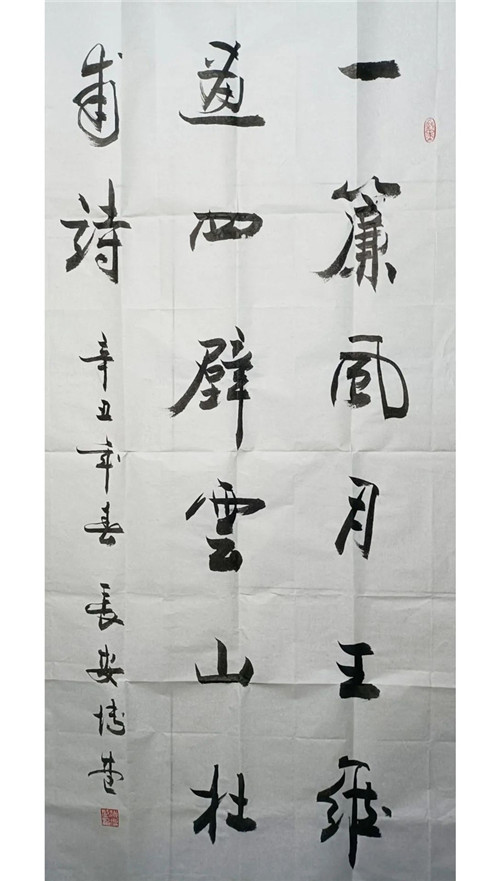 一簾風月王維
畫四壁雲山杜
甫詩
辛丑年春 長安博堂